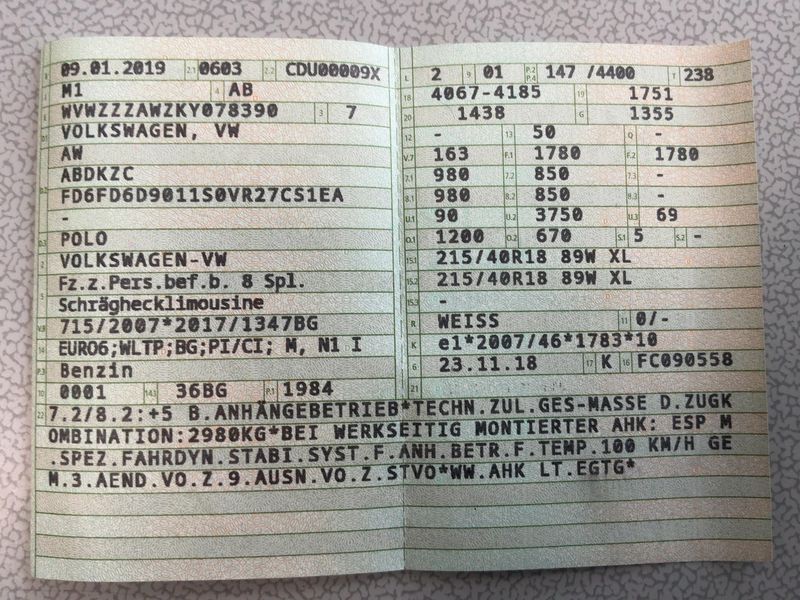 09.01.2019 2.1 0603 2.2 CDU00009X
M1 4 AB
E WVWZZZAWZKY078390 3 7
D.1 VOLKSWAGEN, VW
AW
D.2 ABDKZC
FD6FD6D9011S0VR27CS1EA
-
D.3 POLO
2 VOLKSWAGEN-VW
5 Fz.z.Pers.bef.b. 8 Spl.
Schräghecklimousine
V.9 715/2007*2017/1347BG
14 EURO6;WLTP;BG;PI/CI; M, N1 I
P.3 Benzin
10 0001 14.1 36BG P.1 1984
L 2 9 01 P.2 P.4 147 /4400 T 238
18 4067-4185 19 1751
20 1438 G 1355
12 - 13 50 Q -
V.7 163 F.1 1780 F.2 1780
7.1 980 7.2 850 7.3 -
8.1 980 8.2 850 8.3 -
U.1 90 U.2 3750 U.3 69
O.1 1200 O.2 670 S.1 5 S.2 -
15.1 215/40R18 89W XL
15.2 215/40R18 89W XL
15.3 -
R WEISS 11 0/-
K e1*2007/46*1783*10
6 23.11.18 17 K 16 FC090558
21
22 7.2/8.2:+5 B.ANHÄNGEBETRIEB*TECHN.ZUL.GES-MASSE D.ZUGK
OMBINATION:2980KG*BEI WERKSEITIG MONTIERTER AHK: ESP M
.SPEZ.FAHRDYN.STABI.SYST.F.ANH.BETR.F.TEMP.100 KM/H GE
M.3.AEND.VO.Z.9.AUSN.VO.Z.STVO*WW.AHK LT.EGTG*